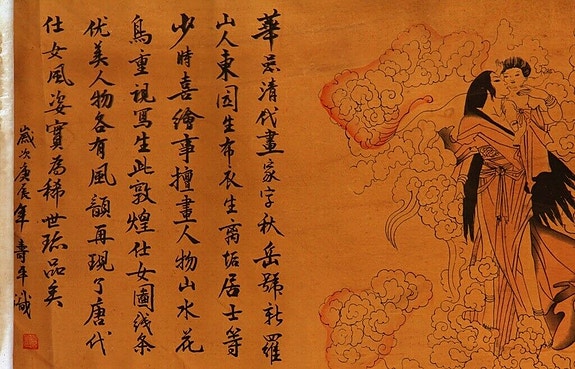 華嵒清代畫家字秋岳號新羅
山人東园生布衣生离垢居士等
少時喜繪事擅畫人物山水花
鳥重視寫生此敦煌仕女圖线条
优美人物各有風韻再現了唐代
仕女風姿實為稀世珍品矣
歲次庚辰年壽平識